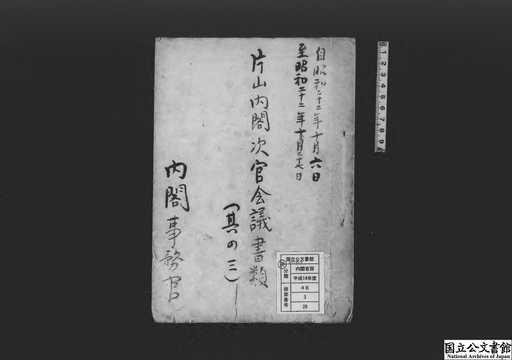 自昭和二十二年十月六日
至昭和二十二年十月二十七日
片山内閣次官会議書類
(其の三)
内閣事務官
国立公文書館
分類
内閣官房
平成14年度
4E
3
28
国立公文書館
National Archives of Japan